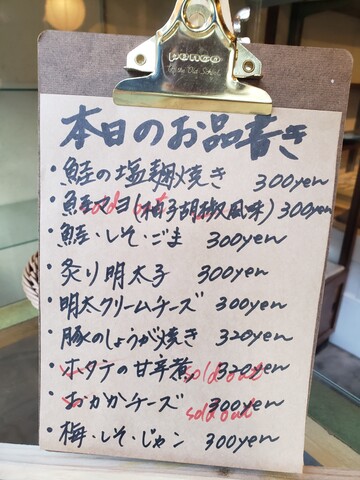 penco
本日のお品書き
・鮭の塩麹焼き 300yen
・鮭マヨ(柚子胡椒風味) 300yen
sold out
・鮭・しそ・ごま 300yen
・炙り明太子 300yen
・明太クリームチーズ 300yen
・豚のしょうが焼き 320yen
・ホタテの甘辛煮 320yen
sold out
・おかかチーズ 300yen
sold out
・梅・しそ・じゃこ 300yen